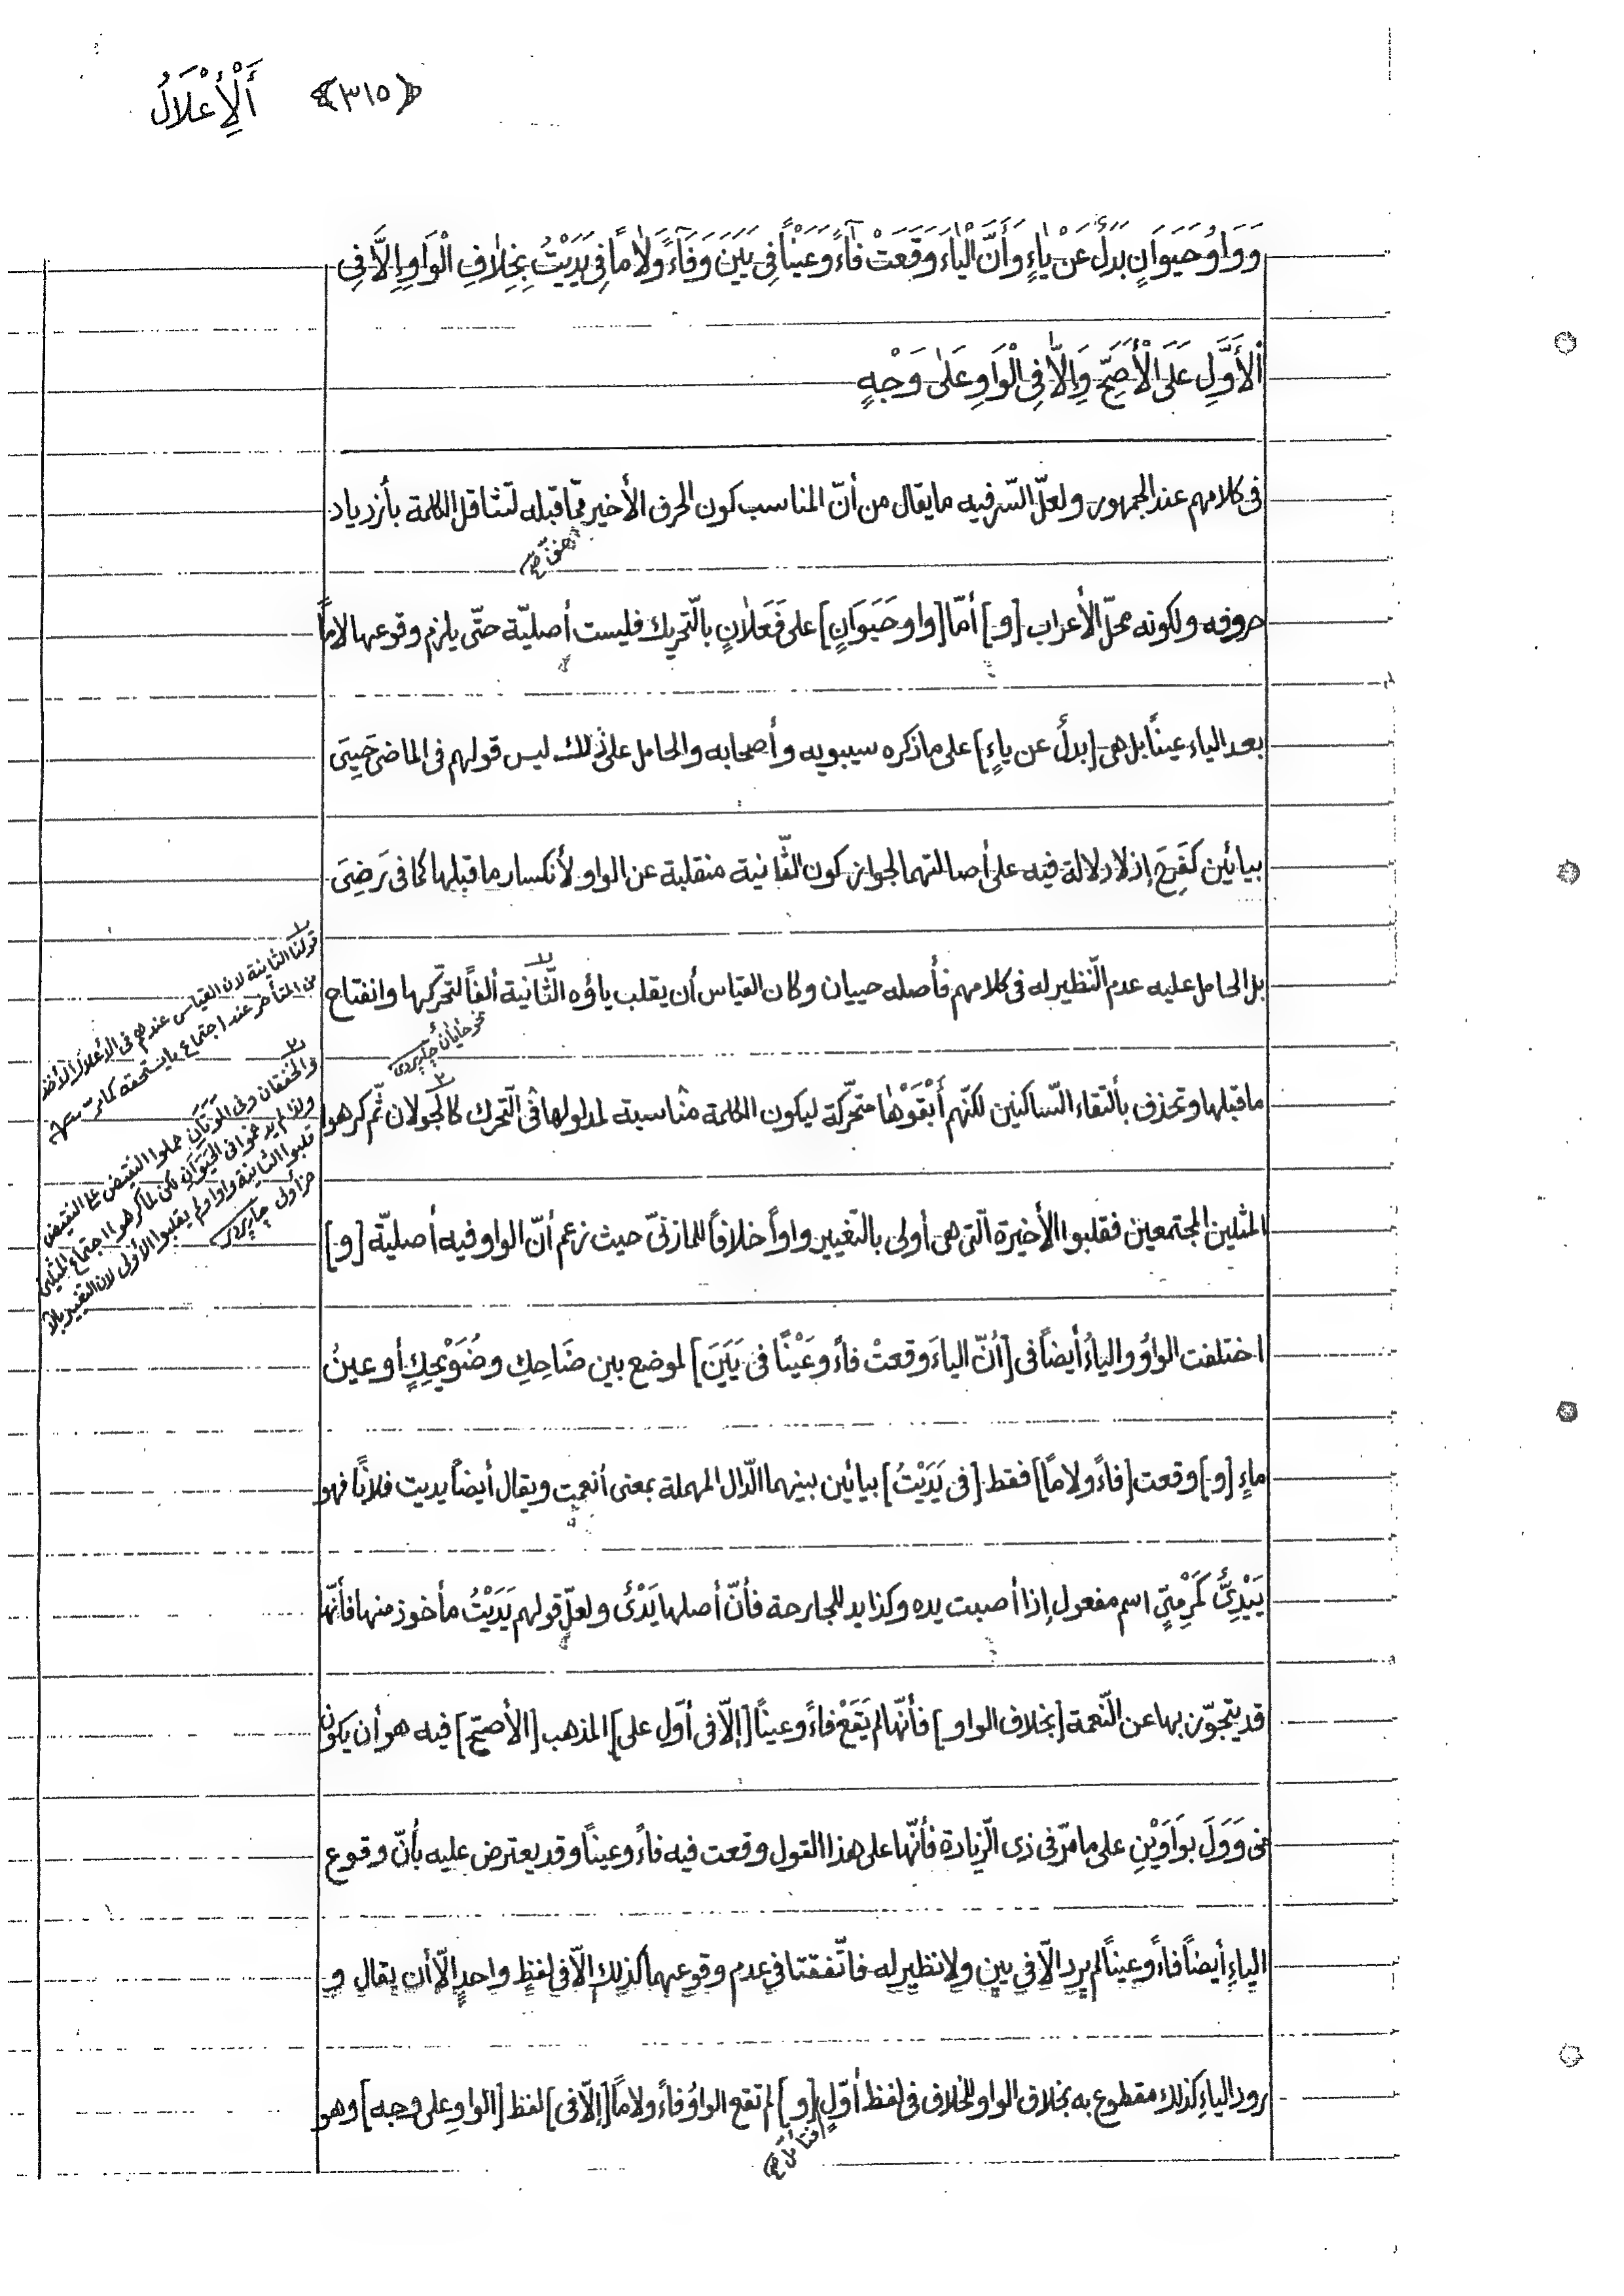 ﴿٣١٥﴾ أَلْأِعْلَالُ
وَوَاوُ حَيَوَانٍ بَدَلٌ عَنْ يٰاءٍ وَأَنَّ الْيٰاءَ وَقَعَتْ فٰاءً وَعَيْنًا فِى يَيَنَ وَفٰاءً وَلٰامًا فِى يَدَيْتُ بِخِلٰافِ الْوٰاوِ إِلَّا فِى
ألأَوَّلِ عَلَى الْأَصَحِّ وَإِلّٰا فِى الْوَاوِ عَلىٰ وَجْهٍ
فى كلامهم عند الجمهور ولعلّ السّر فيه ما يقال من أنّ المناسب كون الحرف الأخير ممّا قبله لتثاقل الكلمة بأزدياد
حروفه ولكونه محلّ الأعراب [و] أمّا [واو حَيَوَانٍ] على فَعَلٰانٍ بالتّحريك فليست أصليّة حتّى يلزم وقوعها لاماً
بعد الياء عيناً بل هى [بدلٌ عن ياءٍ] على ما ذكره سيبويه وأصحابه والحامل على ذلك ليس قولهم فى الماضى حَيِىَ
بيائين كَفَرِحَ إذ لا دلالة فيه على أصالتهما لجواز كون الثّانية منقلبة عن الواو لأنكسار ما قبلها كما فى رَضِىَ
بل الحامل عليه عدم النّظير له فى كلامهم فأصله حييان وكان القياس أن يقلب ياؤه الثّانية ألفاً لتحرّكها وانفتاح
ما قبلها وتحذف بألتقاء السّاكنين لكنّهم أَبْقَوْهٰا متحرّكة ليكون الكلمة مناسبة لمدلولها فى التّحرك كالجولان ثمّ كرهوا
المثلين المجتمعين فقلبوا الأخيرة الّتى هى أولى بالتّغيير واواً خلافاً للمازنىّ حيث زعم أنّ الواو فيه أصليّة [و]
اختلفت الواوُ والياءُ أيضاً فى [أنّ الياءَ وقعتْ فاءً وعَيْنًا فى يَيَنَ] لموضع بين ضَاحِكٍ وضُوَيْحِكٍ أو عينُ
ماءٍ [و] وقعت [فاءً ولاماً] فقط [فى يَدَيْتُ] بيائين بينهما الدّال المهملة بمعنى أنعمت ويقال أيضاً يديت فلانًا فهو
يَيْدِىٌّ كَمَرْمِىٍّ اسم مفعول إذا أصبت يده وكذا يد للجارحة فأنّ أصلها يَدْىٌ ولعلّ قولهم يَدَيْتُ مأخوذ منها فأنّها
قد يتجوّز بها عن النّعمة [بخلاف الواو] فأنّها لم يَقَعْ فاءً وعيناً [إلّا فى أوّل على] المذهب [الأصحّ] فيه هو أن يكون
من وَوَلَ بوَاوَيْنِ على ما مرّ فى ذى الزّيادة فأنّها على هذا القول وقعت فيه فاءً وعيناً وقد يعترض عليه بأنّ وقوع
الياءِ أيضاً فاءً وعيناً لم يرد إلّا فى يين ولا نظير له فاتّفقتا فى عدم وقوعهما كذلك إلّا فى لفظٍ واحدٍ إلّا أن يقال و
رود الياءِ كذلك مقطوع به بخلاف الواو للخلاف فى لفظ أوّلٍ [و] لم تقع الواوُ فاءً ولاماً [إلّا فى] لفظ [الواوِ على وجه] وهو
١
قولنا الثانية لان القياس عندهم فى الأعلال الأخذ
من المتأخر عند اجتماع ما يستحقه كما مرّ
٢
والخفقان وفى المَوَتَان حملوا النقيض على النقيض
ولذا لم يدغموا فى الحَيَوَانِ لكن لما كرهوا اجتماع المثلين
قلبوا الثانية واوا ولم يقلبوا الأولى لان التغيير بالآ
خر أولى چاپردى